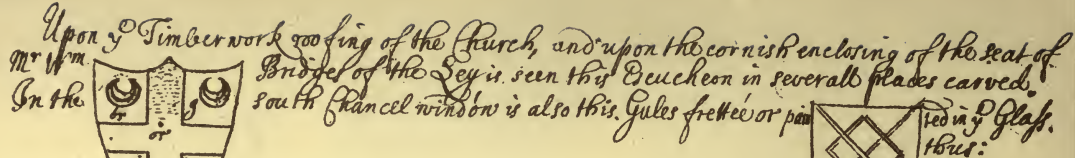 Upon yͤ Timberwork roofing of the Church, and upon the cornish enclosing of the seat of
Mr Wm Bridges of the Ley is seen this Escucheon in severall places carved.
In the south Chancel window is also this. Gules frettée or pain ted in yͤ Glass.
thus:
or or g